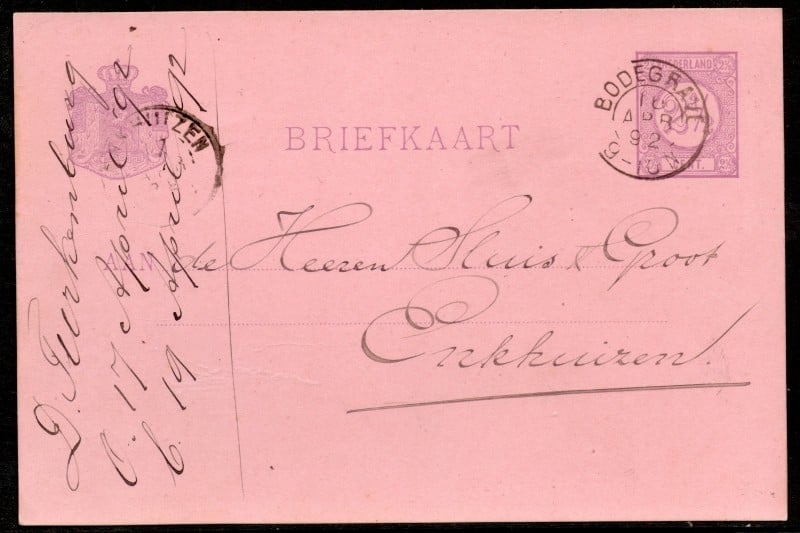 BRIEFKAART
NEDERLAND
BODEGRAVE
APR
92
9-10V
CENT.
UIZEN
AAN de Heeren Sluis & Groot
Enkhuizen.
D. Turkenburg
O. 17 April 92
b. 19 April 92